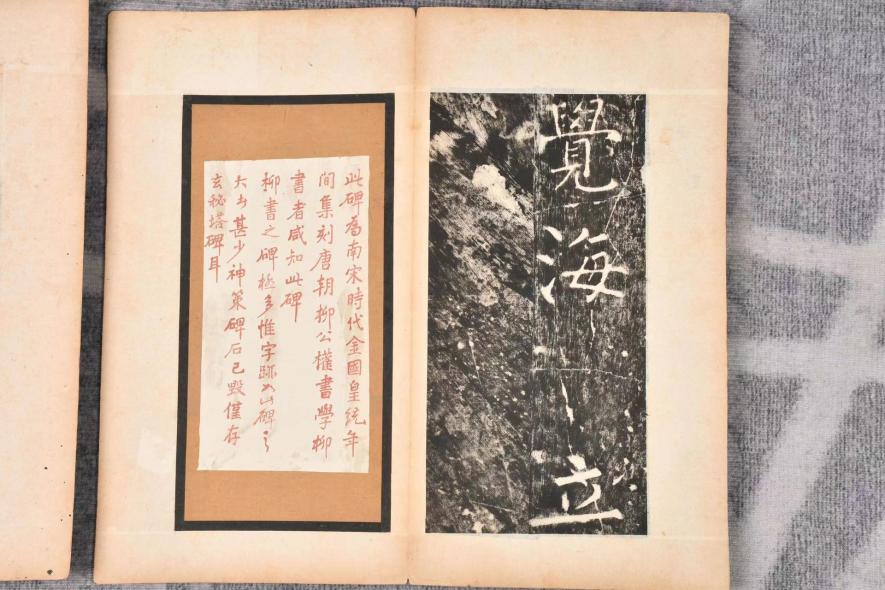 覺海
立
此碑為南宋時代金國皇統年
間集刻唐朝柳公權書學柳
書者咸知此碑
柳書之碑極多惟字跡如此碑之
大者甚少神策碑石已毀僅存
玄秘塔碑耳